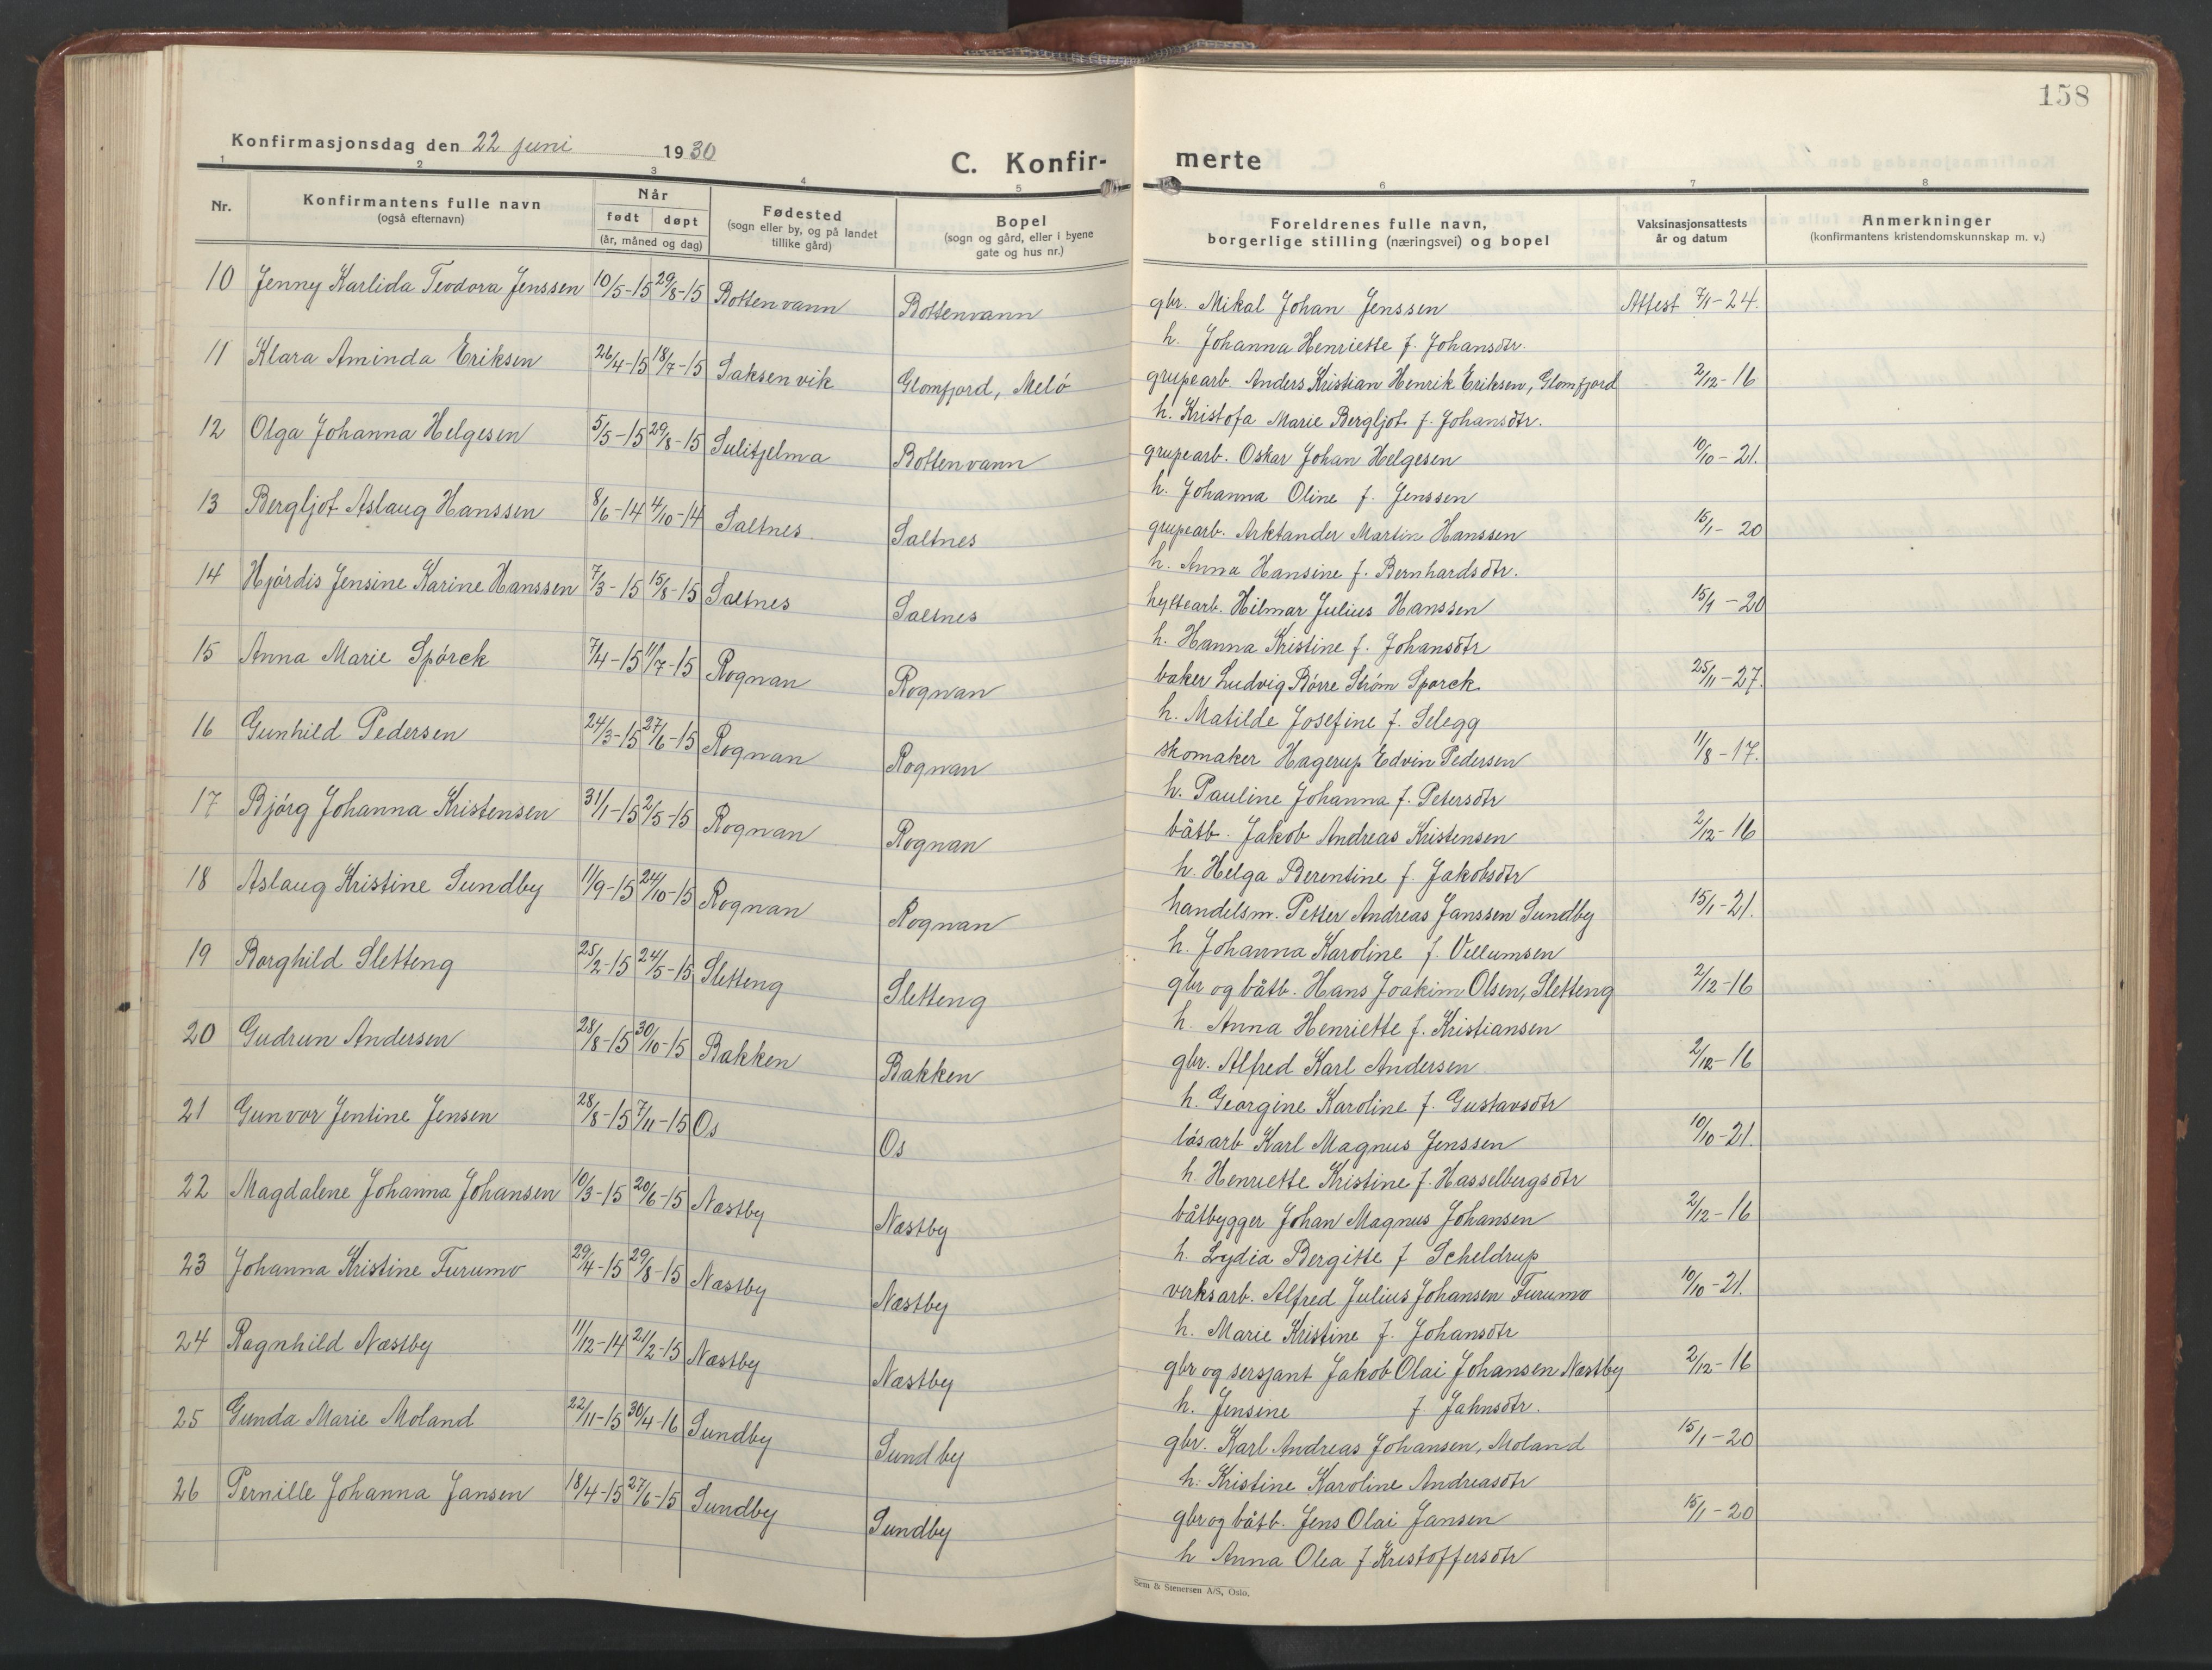 158
Konfirmasjonsdag den 22 juni 1930
C. Konfir- merte
1 2 3 4 5 6 7 8
Nr. Konfirmantens fulle navn (også efternavn) Når født døpt (år, måned og dag) Fødested (sogn eller by, og på landet tillike gård) Bopel (sogn og gård, eller i byene gate og hus nr.) Foreldrenes fulle navn, borgerlige stilling (næringsvei) og bopel Vaksinasjonsattests år og datum Anmerkninger (konfirmantens kristendomskunnskap m. v.)
10 Jenny Karlida Teodora Jenssen 10/5-15 29/8-15 Bottenvann Bottenvann gbr. Mikal Johan Jenssen Attest 7/1-24.
h. Johanna Henriette f. Johansdtr.
11 Klara Aminda Eriksen 26/4-15 18/7-15 Saksenvik Glomfjord, Melö grupearb. Anders Kristian Henrik Eriksen, Glomfjord 2/12-16
h. Kristofa Marie Bergljot f. Johansdtr.
12 Olga Johanna Helgesen 5/5-15 29/8-15 Sulitjelma Bottenvann grupearb. Oskar Johan Helgesen 10/10-21.
h. Johanna Oline f. Jenssen
13 Bergljot Aslaug Hanssen 8/6-14 4/10-14 Saltnes Saltnes grupearb. Arktander Martin Hanssen 15/1-20
h. Anna Hansine f. Bernhardsdtr.
14 Hjördis Jensine Karine Hanssen 7/3-15 15/8-15 Saltnes Saltnes hyttearb. Hilmar Julius Hanssen 15/1-20
h. Hanna Kristine f. Johansdtr
15 Anna Marie Spörck 7/4-15 11/7-15 Rognan Rognan baker Ludvig Börre Ström Spørck 25/11-27.
h. Matilde Josefine f. Selegg
16 Gunhild Pedersen 24/3-15 27/6-15 Rognan Rognan skomaker Hagerup Edvin Pedersen 11/8-17.
h. Pauline Johanna f. Petersdtr
17 Bjórg Johanna Kristensen 31/1-15 2/5-15 Rognan Rognan båtb. Jakob Andreas Kristensen 2/12-16
h. Helga Berentine f. Jakobsdtr
18 Aslaug Kristine Sundby 11/9-15 24/10-15 Rognan Rognan handelsm. Petter Andreas Janssen Sundby 15/1-21.
h. Johanna Karoline f Villumsen
19 Borghild Sletteng 25/2-15 24/5-15 Sletteng Sletteng gbr og båtb. Hans Joakim Olsen, Sletteng 2/12-16
h. Anna Henriette f. Kristiansen
20 Gudrun Andersen 28/8-15 30/10-15 Bakken Bakken gbr. Alfred Karl Andersen 2/12-16
h. Georgine Karoline f. Gustavsdtr
21 Gunvor Jentine Jensen 28/8-15 7/11-15 Os Os lósarb Karl Magnus Jenssen 10/10-21.
h. Henriette Kristine f. Hasselbergsdtr
22 Magdalene Johanna Johansen 10/3-15 20/6-15 Næstby Næstby båtbygger Johan Magnus Johansen 2/12-16
h. Lydia Bergitte f Scheldrup
23 Johanna Kristine Furumo 29/4-15 29/8-15 Næstby Næstby verksarb. Alfred Julius Johansen Furumo 10/10-21.
h. Marie Kristine f. Johansdtr
24 Ragnhild Næstby 11/12-14 21/2-15 Næstby Næstby gbr og sersjant Jakob Olai Johansen Næstby 2/12-16
h. Jensine f Jahnsdtr.
25 Gunda Marie Moland 22/11-15 30/4-16 Sundby Sundby gbr. Karl Andreas Johansen, Moland 15/1-20
h. Kristine Karoline Andreasdtr
26 Pernille Johanna Jansen 18/4-15 27/6-15 Sundby Sundby gbr og båtb. Jens Olai Jansen 15/1-20
h Anna Olea f Kristoffersdtr
Sem & Stenersen A/S, Oslo.